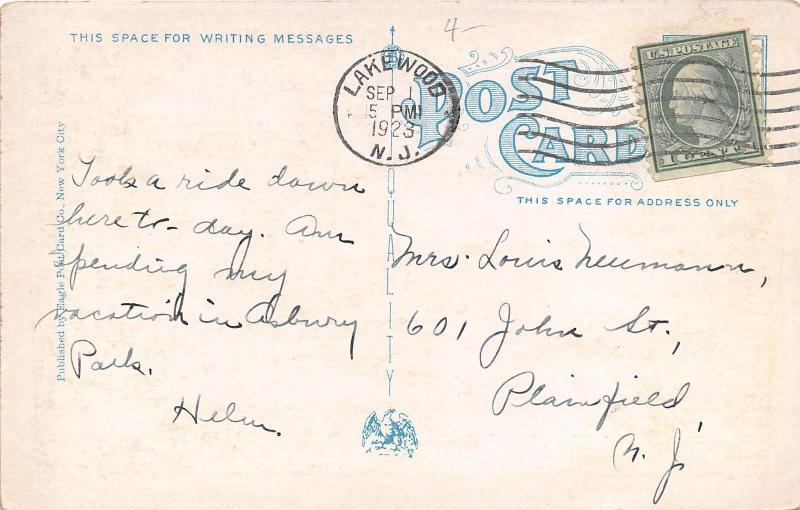 THIS SPACE FOR WRITING MESSAGES
4-
LAKEWOOD
SEP 1
5 PM
1923
N. J.
U.S. POSTAGE
POST
CARD
THIS SPACE FOR ADDRESS ONLY
QUALITY
Published by Eagle Post Card Co., New York City
Took a ride down
here to-day. Am
spending my
vacation in Asbury
Park.
Helen.
Mrs. Louis Neumann,
601 John St.,
Plainfield,
N. J.